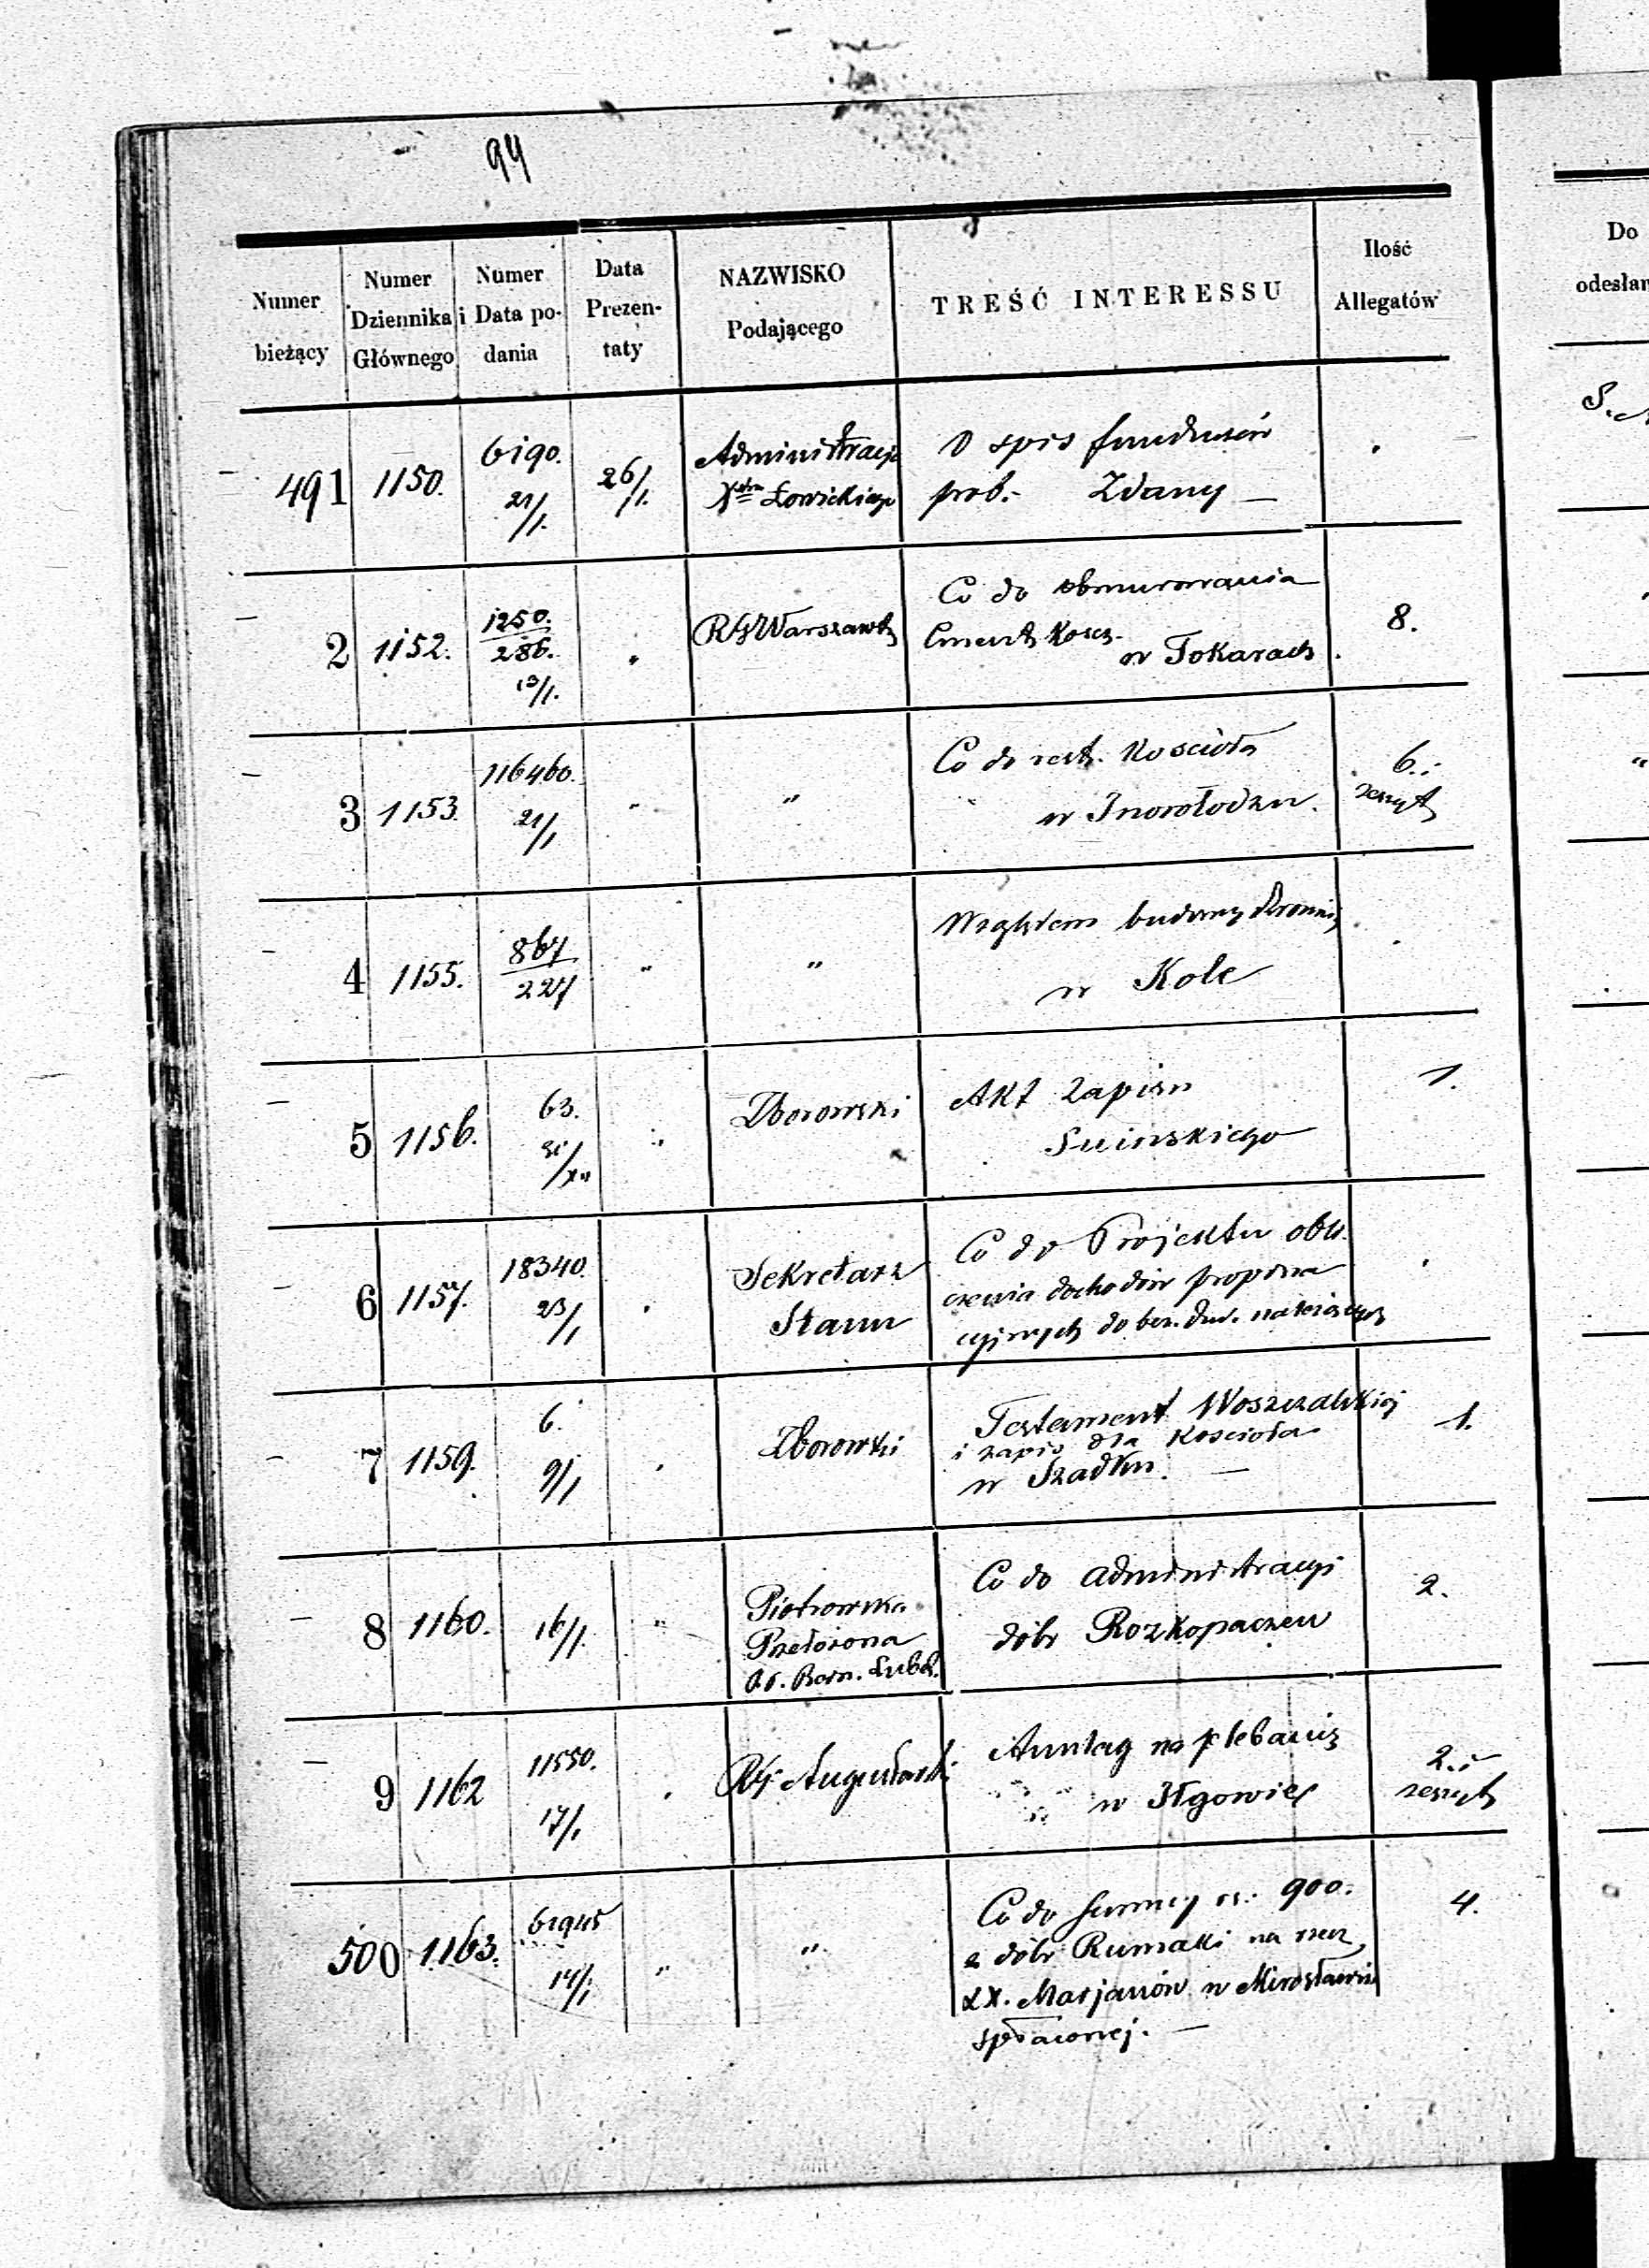 94
Numer bieżący
Numer Dziennika Głównego
Numer i Data podania
Data Prezentaty
NAZWISKO Podającego
TREŚĆ INTERESSU
Ilość Allegatów
Do
odesłan
491 1150. 6190. 21/1. 26/1. Administracja Xtwa Łowickiego
O spis funduszów
prob. Zdany —
2 1152. 1250./286. 13/1. " RG Warszawsk
Co do obmurowania
Cment. Kosc.
w Tokarach. 8.
3 1153. 116460. 21/1 " "
Co do rest. Kościoła
w Inowłodzu. 6. i zeszyt
4 1155. 867/227 " "
Względem budowy
w Kole
5 1156. 63. 31/XII " Zborowski
Akt zapisu
Suinskiego 1.
6 1157. 18340. 23/1 " Sekretarz Stanu
Co do Projektu obli
czenia dochodów propina
cyjnych do
7 1159. 6. 9/1 " Zborowski
Testament
i zapis dla Kościoła
w Szadku. — 1.
8 1160. 16/1. " Piotrowska Przełożona
Co do administracyi
dóbr Rozkopaczew 2.
9 1162 11550. 17/1. " RG Augustowski
Anszlag na plebanię
w Iłgowie 2. i zeszyt
500 1163. 61945 14/1 " "
Co do summy rs. 900.
z dóbr Rumaki na rzecz
XX. Marjanów w Mirosławiu
spłaconej. — 4.